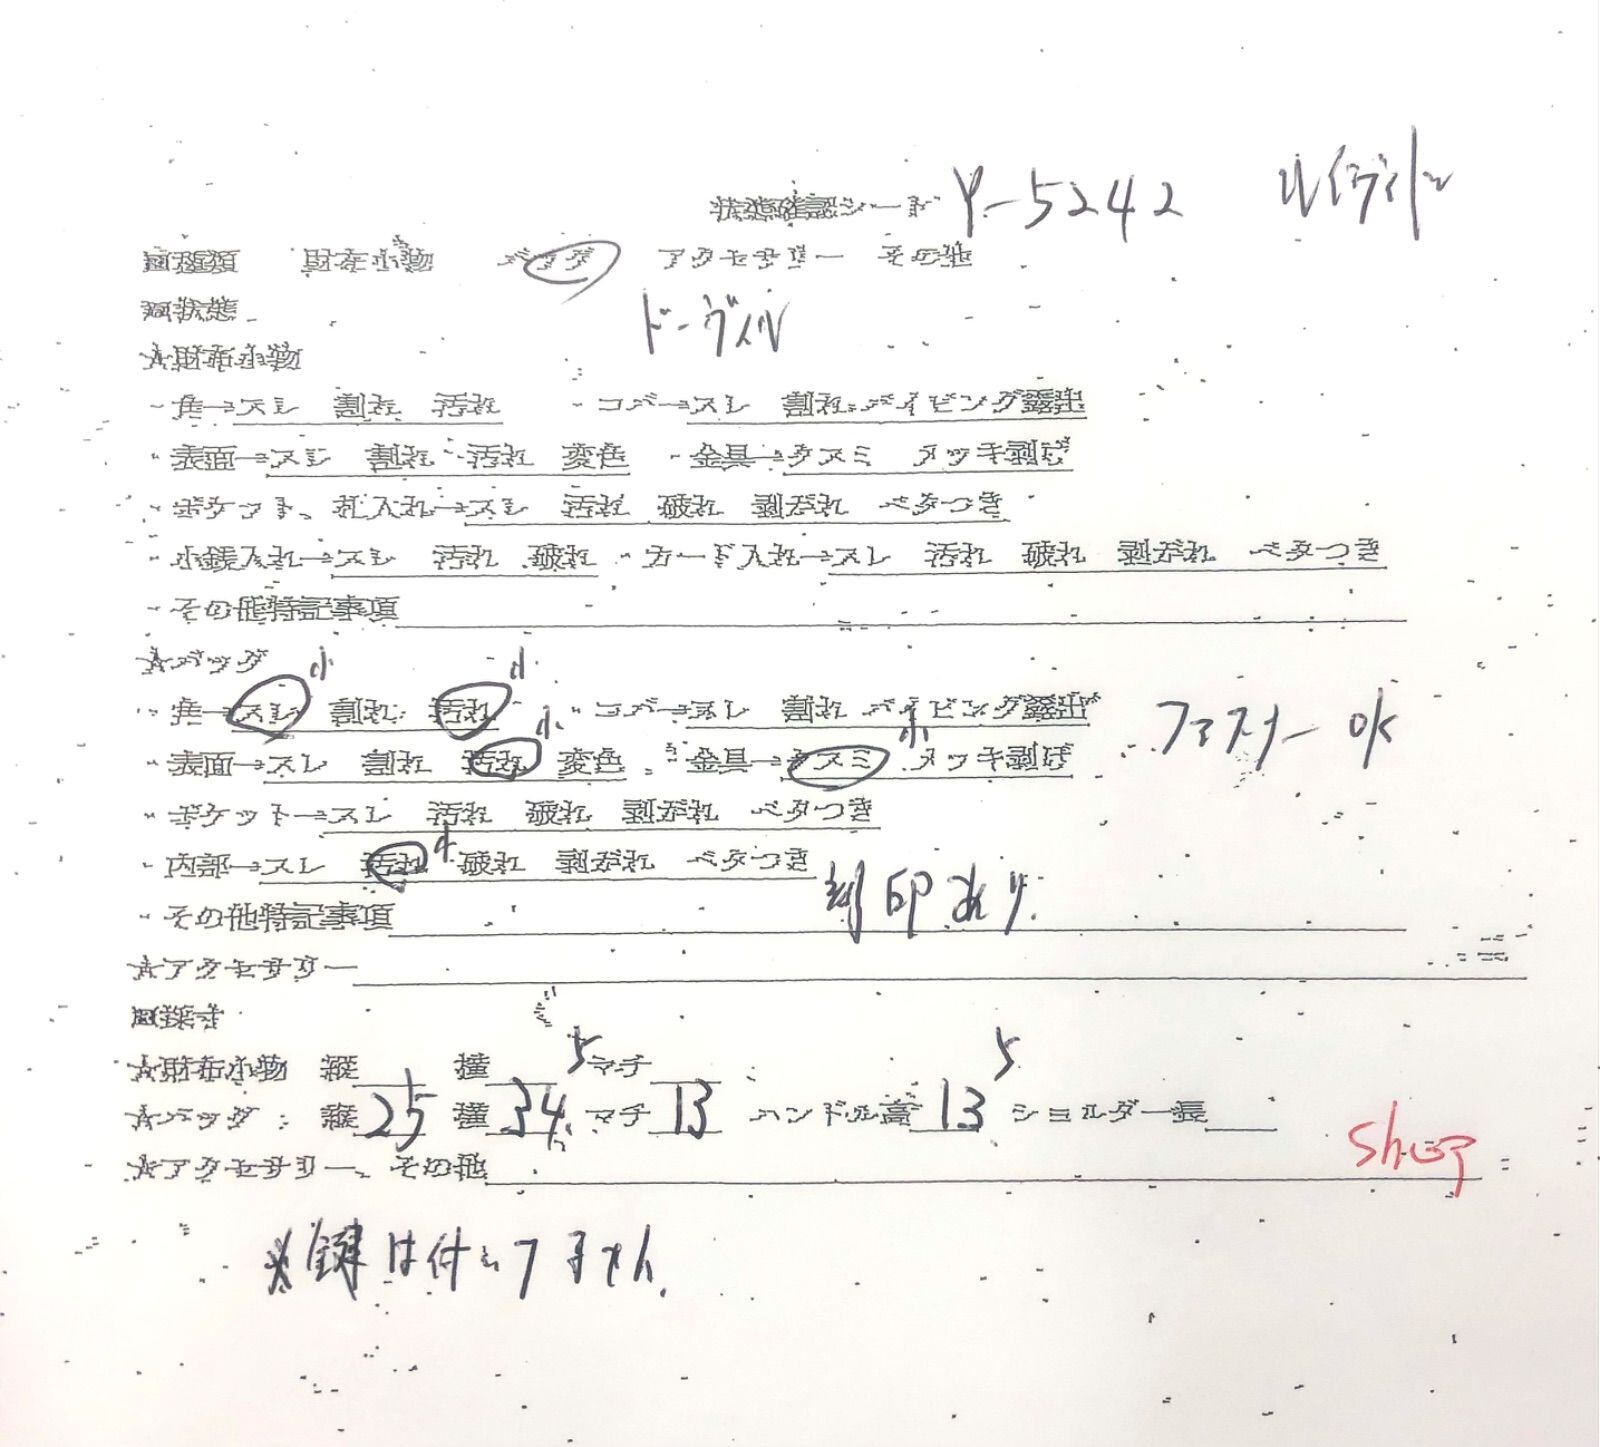 状態確認シート Y-5242 ルイヴィトン
■種類 財布小物 バッグ アクセサリー その他
■状態
ドーヴィル
☆財布小物
・角→スレ 割れ 汚れ ・コバ→スレ 割れ パイピング露出
・表面→スレ 割れ 汚れ 変色 ・金具→クスミ メッキ剥げ
・ポケット、札入れ→スレ 汚れ 破れ 剥がれ ベタつき
・小銭入れ→スレ 汚れ 破れ ・カード入れ→スレ 汚れ 破れ 剥がれ ベタつき
・その他特記事項
☆バッグ
小 小
・角→スレ 割れ 汚れ ・コバ→スレ 割れ パイピング露出
小 小 ファスナー OK
・表面→スレ 割れ 汚れ 変色 ・金具→クスミ メッキ剥げ
・ポケット→スレ 汚れ 破れ 剥がれ ベタつき
・内部→スレ 汚れ 小 破れ 剥がれ ベタつき
・その他特記事項 刻印あり
☆アクセサリー
■採寸
☆財布小物 縦 横 マチ
☆バッグ 縦 25 横 34.5 マチ 13 ハンドル高 13.5 ショルダー長
☆アクセサリー、その他
shop
※鍵は付いてません。